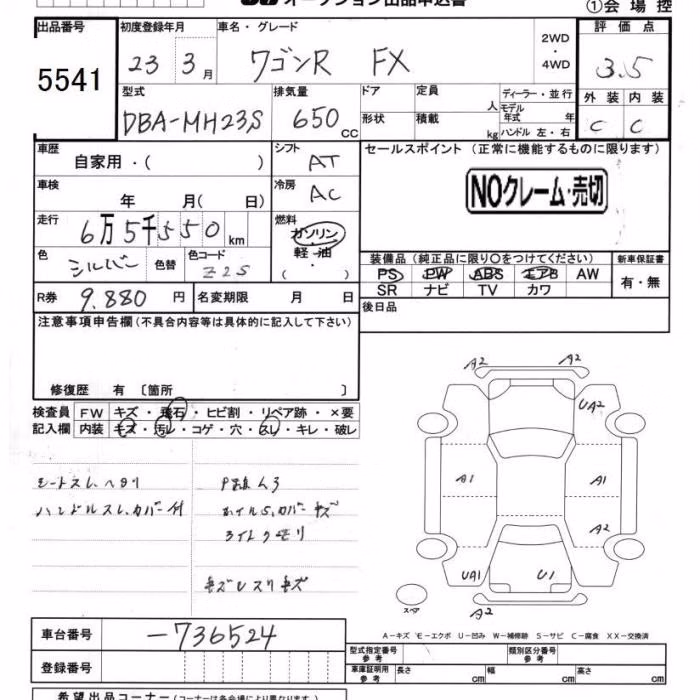 オークション出品申込書
①会場控
出品番号 初度登録年月 車名・グレード 2WD・4WD 評価点
5541 23 3月 ワゴンR FX 3.5
型式 排気量 ドア 定員 人 ディーラー・並行 外装 内装
DBA-MH23S 650cc 形状 積載 kg モデル年式 年 C C
ハンドル 左・右
車歴 自家用・( ) シフト AT セールスポイント (正常に機能するものに限ります)
車検 年 月( 日) 冷房 AC NOクレーム・売切
走行 6万5千550km 燃料 ガソリン 軽・油 ( ・ )
色 シルバー 色替 色コード Z2S 装備品(純正品に限り○をつけてください) 新車保証書
PS PW ABS エアB AW 有・無
SR ナビ TV カワ
R券 9,880円 名変期限 月 日 後日品
注意事項申告欄(不具合内容等は具体的に記入して下さい)
修復歴 有 〔箇所 〕
検査員 FW キズ・飛石・ヒビ割・リペア跡・×要
記入欄 内装 キズ・汚レ・コゲ・穴・スレ・キレ・破レ
シートスレ ヘタリ
ハンドルスレ、カバー付
ホイルS、カバーキズ
ライトクモリ
A2 A2
UA2
A1 A1
A2
UA1 U1
スペア A2
A-キズ E-エクボ U-凹み W-補修跡 S-サビ C-腐食 XX-交換済
車台番号 -736524
型式指定番号 参考 類別区分番号 参考
登録番号 車庫証明用 参考 長さ cm 幅 cm 高さ cm
希望出品コーナー(コーナーは各会場により異なります)